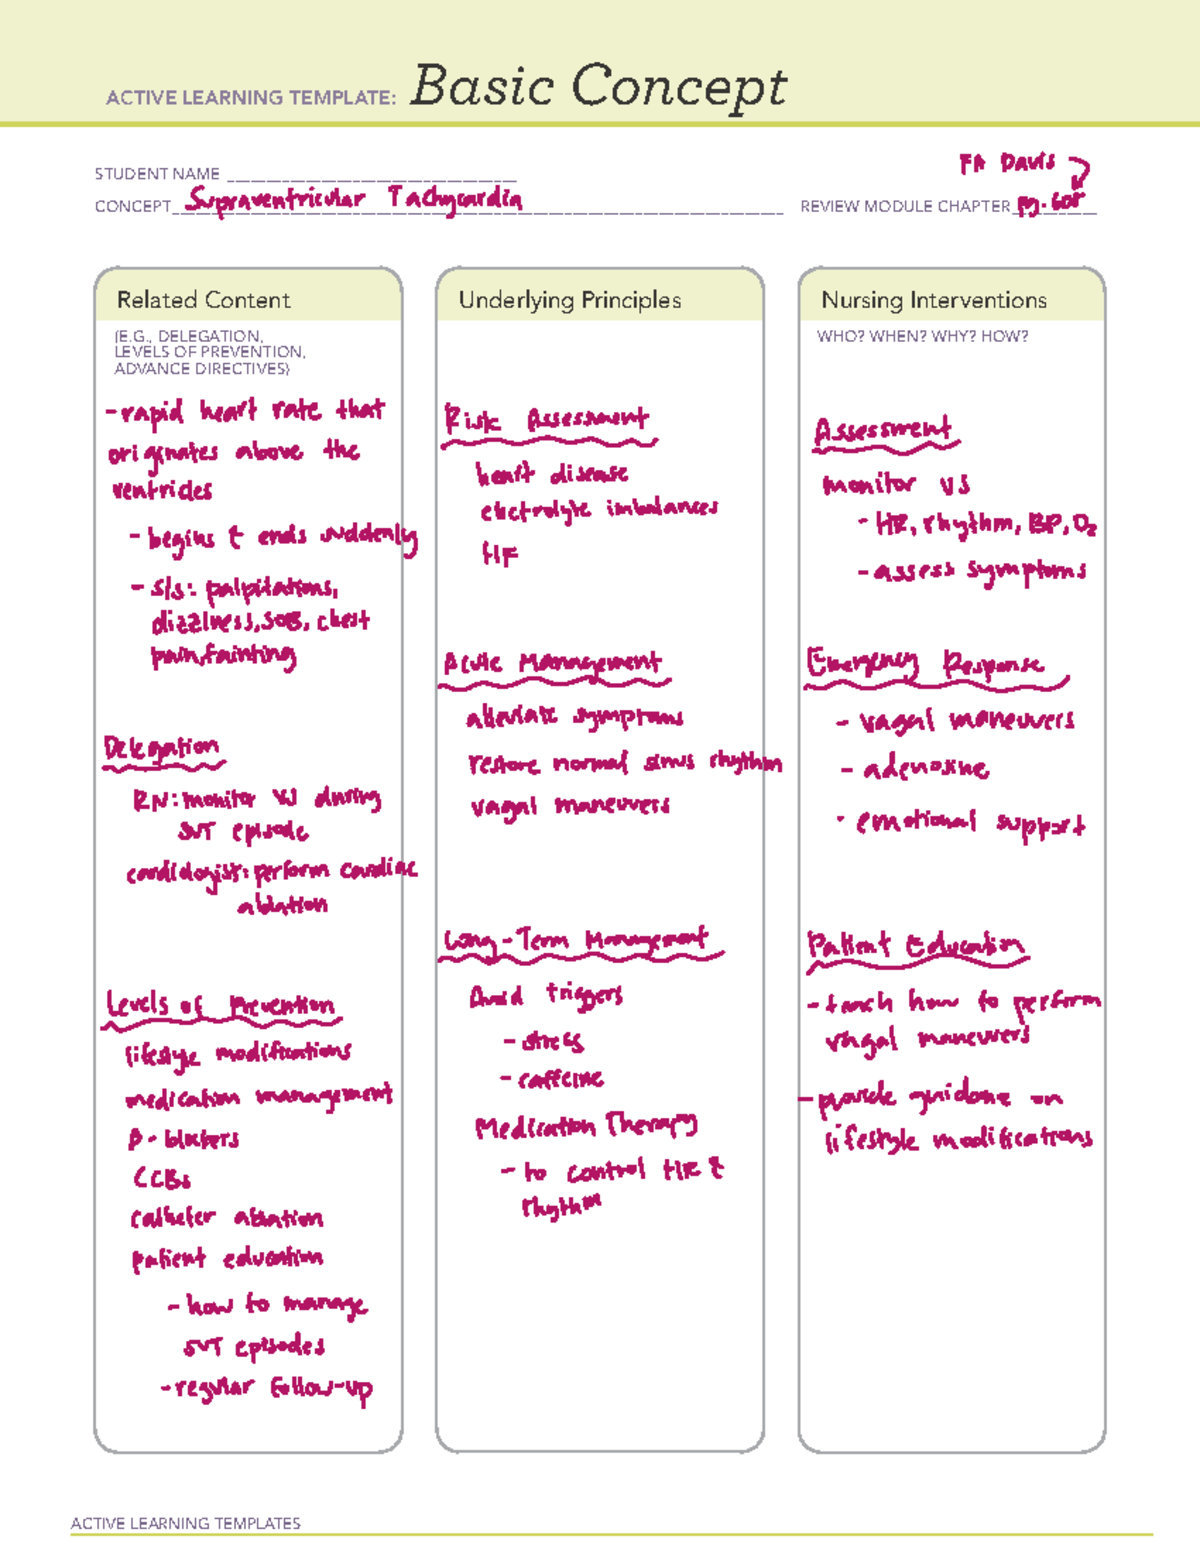 ACTIVE LEARNING TEMPLATE: Basic Concept
STUDENT NAME
FA Davis
CONCEPT Supraventricular Tachycardia
REVIEW MODULE CHAPTER pg. 608
Related Content
(E.G., DELEGATION,
LEVELS OF PREVENTION,
ADVANCE DIRECTIVES)
- rapid heart rate that
originates above the
ventricles
- begins & ends suddenly
- S/S: palpitations,
dizziness, SOB, chest
pain, fainting
Delegation
RN: monitor VS during
SVT episode
cardiologist: perform cardiac
ablation
Levels of Prevention
lifestyle modifications
medication management
β-blockers
CCBs
catheter ablation
patient education
- how to manage
SVT episodes
- regular follow-up
Underlying Principles
Risk Assessment
heart disease
electrolyte imbalances
HF
Acute Management
alleviate symptoms
restore normal sinus rhythm
vagal maneuvers
Long-Term Management
Avoid triggers
- stress
- caffeine
Medication Therapy
- to control HR &
rhythm
Nursing Interventions
WHO? WHEN? WHY? HOW?
Assessment
monitor VS
- HR, rhythm, BP, O2
- assess symptoms
Emergency Response
- vagal maneuvers
- adenosine
- emotional support
Patient Education
- teach how to perform
vagal maneuvers
- provide guidance on
lifestyle modifications
ACTIVE LEARNING TEMPLATES